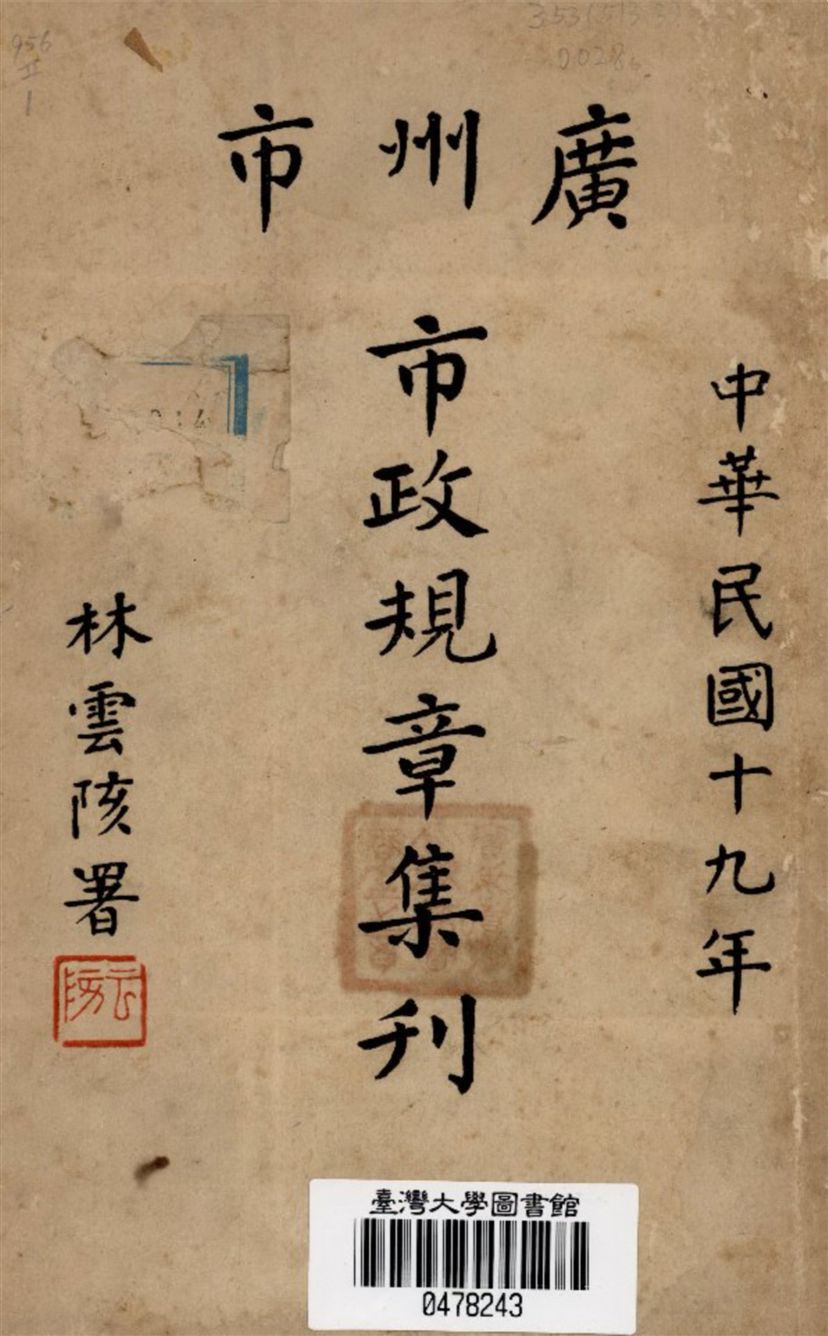 廣州市
中華民國十九年
市政規章集刊
林雲陔署
雲陔
956
II
1
臺灣大學圖書館
0478243